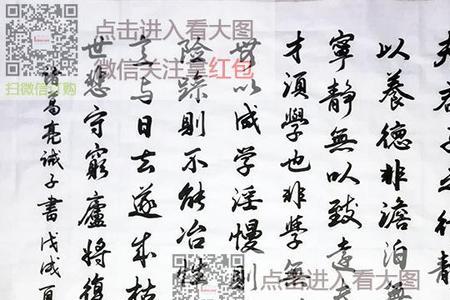 夫君子之行静
以養德非澹泊無
寧靜無以致遠夫
才須學也非學無
無以成学淫慢則
險躁則不能冶性
意与日去遂成枯
世悲守窮廬將復
諸葛亮诫子書戊戌夏
点击进入看大图
微信关注拿红包
扫微信订购
点击进入看大图